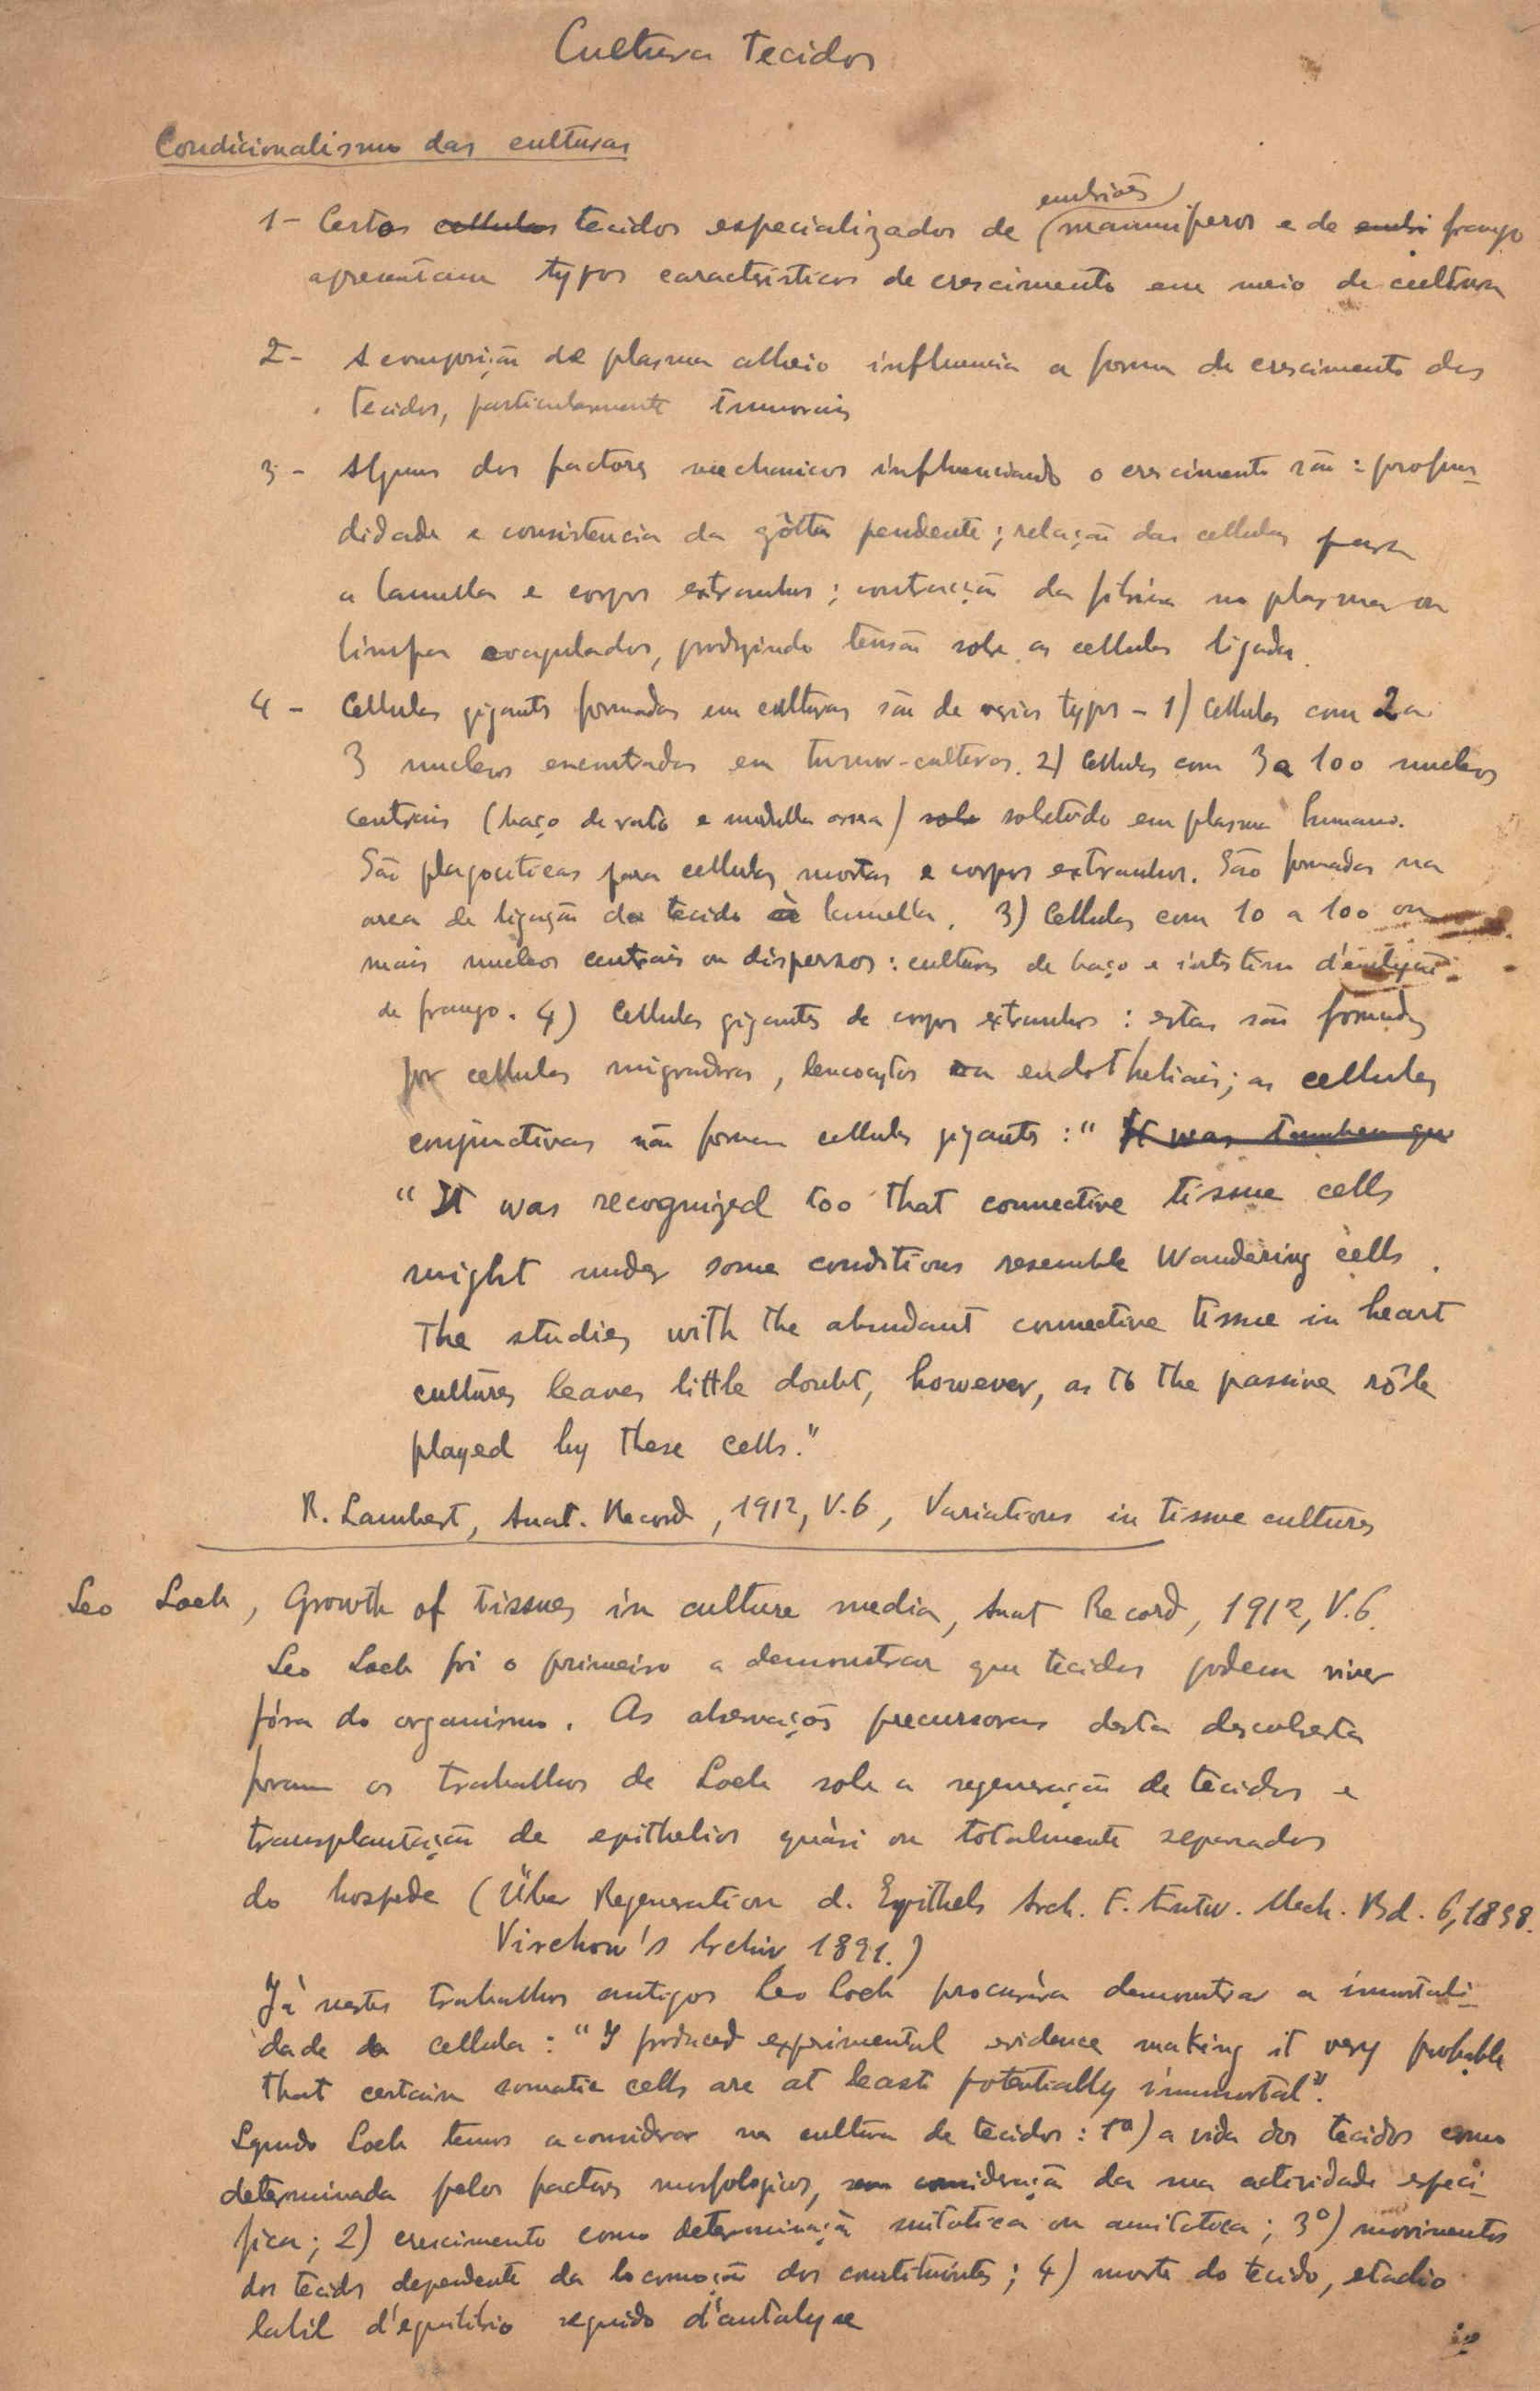 Cultura Tecidos
Condicionalismo das culturas
embriões
1- Certos cellulas tecidos especializados de mammiferos e de embri frango
apresentam typos caracteristicos de crescimento em meio de cultura
2- A composição de plasma alheio influencia a forma de crescimento dos
tecidos, particularmente tumorais
3- Alguns dos factores mechanicos influenciando o crescimento são: profun-
didade e consistencia da gôtta pendente; relação das cellulas para
a lamella e corpos extranhos; contracção da fibrina no plasma ou
limpha coagulados, produzindo tensão sobre as cellulas ligadas.
4- Cellulas gigantes formadas em culturas são de varios typos - 1) Cellulas com 2 a
3 nucleos encontradas em tumor-culturas. 2) Cellulas com 3 a 100 nucleos
centrais (baço de rato e medulla ossea) sobr sobretudo em plasma humano.
São phagociticas para cellulas mortas e corpos extranhos. São formadas na
area de ligação do tecido à lamella. 3) Cellulas com 10 a 100 ou
mais nucleos centrais ou dispersos: culturas de baço e intestino d'embryão
de frango. 4) Cellulas gigantes de corpos extranhos: estas são formadas
por cellulas migradoras, leucocytos ou endotheliais; as cellulas
conjunctivas não formam cellulas gigantes: " It was tambem que
"It was recognized too that connective tissue cells
might under some conditions resemble wandering cells.
The studies with the abundant connective tissue in heart
cultures leaves little doubt, however, as to the passive rôle
played by these cells."
R. Lambert, Anat. Record, 1912, V.6, Variations in tissue cultures
Leo Loeb, Growth of tissues in culture media, Anat Record, 1912, V.6.
Leo Loeb foi o primeiro a demonstrar que tecidos podem viver
fóra do organismo. As observações precursoras desta descoberta
foram os trabalhos de Loeb sobre a regeneração de tecidos e
transplantação de epithelios quàsi ou totalmente separados
do hospede (Über Regeneration d. Epithels Arch. F. Entw. Mech. Bd. 6, 1898.
Virchow's Archiv 1891.)
Já nestes trabalhos antigos Leo Loeb procurára demonstrar a immortali-
dade da cellula: "I produced experimental evidence making it very probable
that certain somatic cells are at least potentially immortal".
Segundo Loeb temos a considerar na cultura de tecidos: 1º) a vida dos tecidos como
determinada pelos factores morfologicos, sem consideração da sua actividade especi-
fica; 2) crescimento como determinação mitotica ou amitotica; 3º) movimentos
dos tecidos dependente da locomoção dos constituintes; 4) morte do tecido, estadio
labil d'equilibrio seguido d'autolyse